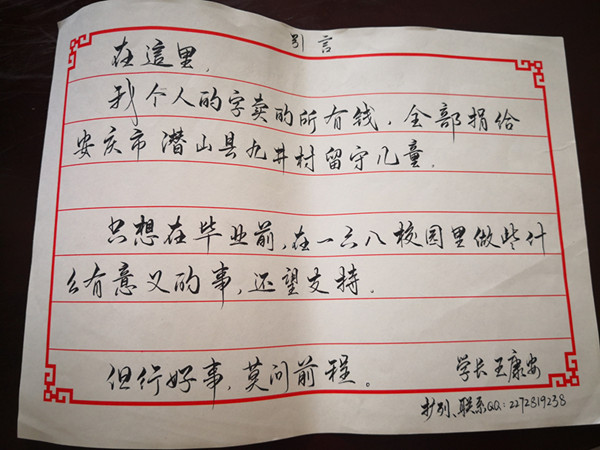 引言
在這里,
我个人的字卖的所有钱,全部捐给
安庆市潜山县九井村留守儿童.
只想在毕业前,在一六八校园里做些什
么有意义的事,还望支持.
但行好事,莫问前程。
学长王康安
抄别、联系QQ:2272819238